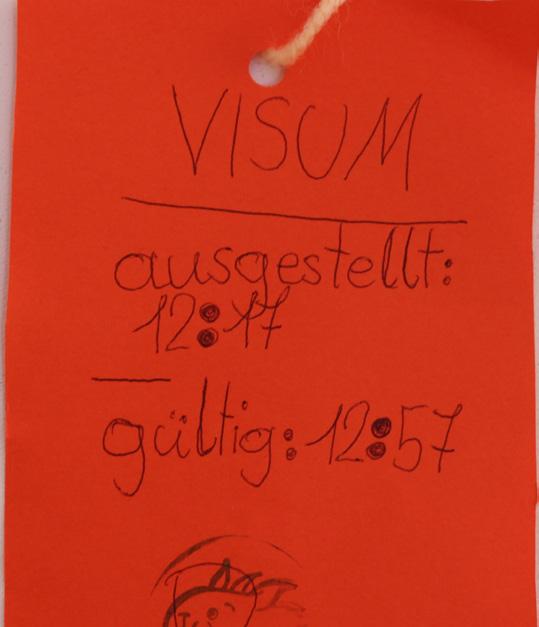 VISUM
ausgestellt:
12:17
gültig: 12:57